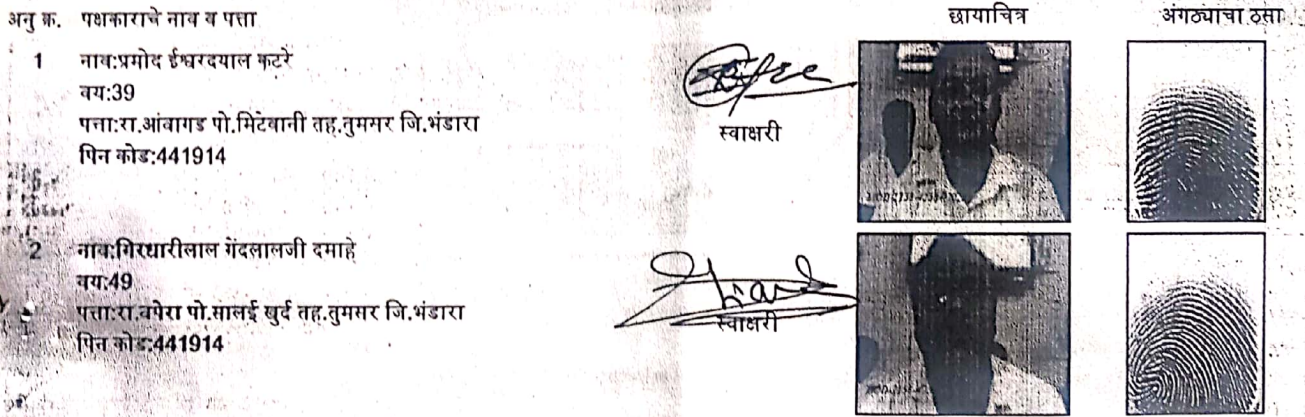 अनु क्र. पक्षकाराचे नाव व पत्ता छायाचित्र अंगठ्याचा ठसा
1 नाव:प्रमोद ईश्वरदयाल कटरे
वय:39
पत्ता:रा.आंबागड पो.मिटेवानी तह.तुमसर जि.भंडारा
पिन कोड:441914
स्वाक्षरी
2 नाव:गिरधारीलाल गेंदलालजी दमाहे
वय:49
पत्ता:रा.वपेरा पो.सालई खुर्द तह.तुमसर जि.भंडारा
पिन कोड:441914
स्वाक्षरी